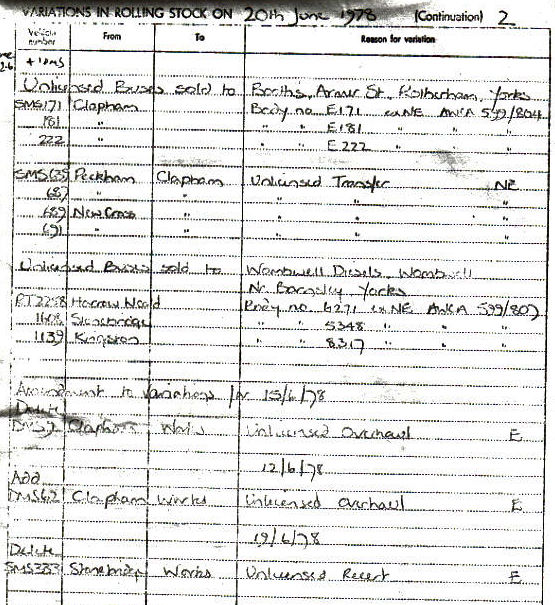 VARIATIONS IN ROLLING STOCK ON 20th June 1978 (Continuation) 2
Vehicle number From To Reason for variation
Unlicensed Buses sold to Booths, Armer St, Rotherham, Yorks
SMS171 Clapham Body no E171 ex NE AWKA 599/804
181 " " " E181 " " "
222 " " " E222 " " "
Peckham Clapham Unlicensed Transfer NE
687 " " " " "
689 New Cross " " " "
691 " " " " "
Unlicensed Buses sold to Wombwell Diesels, Wombwell
Nr Barnsley Yorks
RT2258 Harrow Weald Body no 6271 ex NE AWKA 599/807
1608 Stonebridge " " 5348 " " "
1139 Kingston " " 8317 " " "
Amendment to Variations for 15/6/78
Delete
Clapham Works Unlicensed Overhaul E
12/6/78
Add
DMS62 Clapham Works Unlicensed Overhaul E
19/6/78
Delete
SMS383 Stonebridge Works Unlicensed Recert E